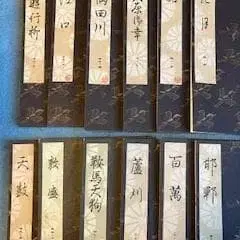 月
原御幸
隅田川
口
遊行柳
邯鄲
百萬
蘆刈
鞍馬天狗
敦盛
天鼓